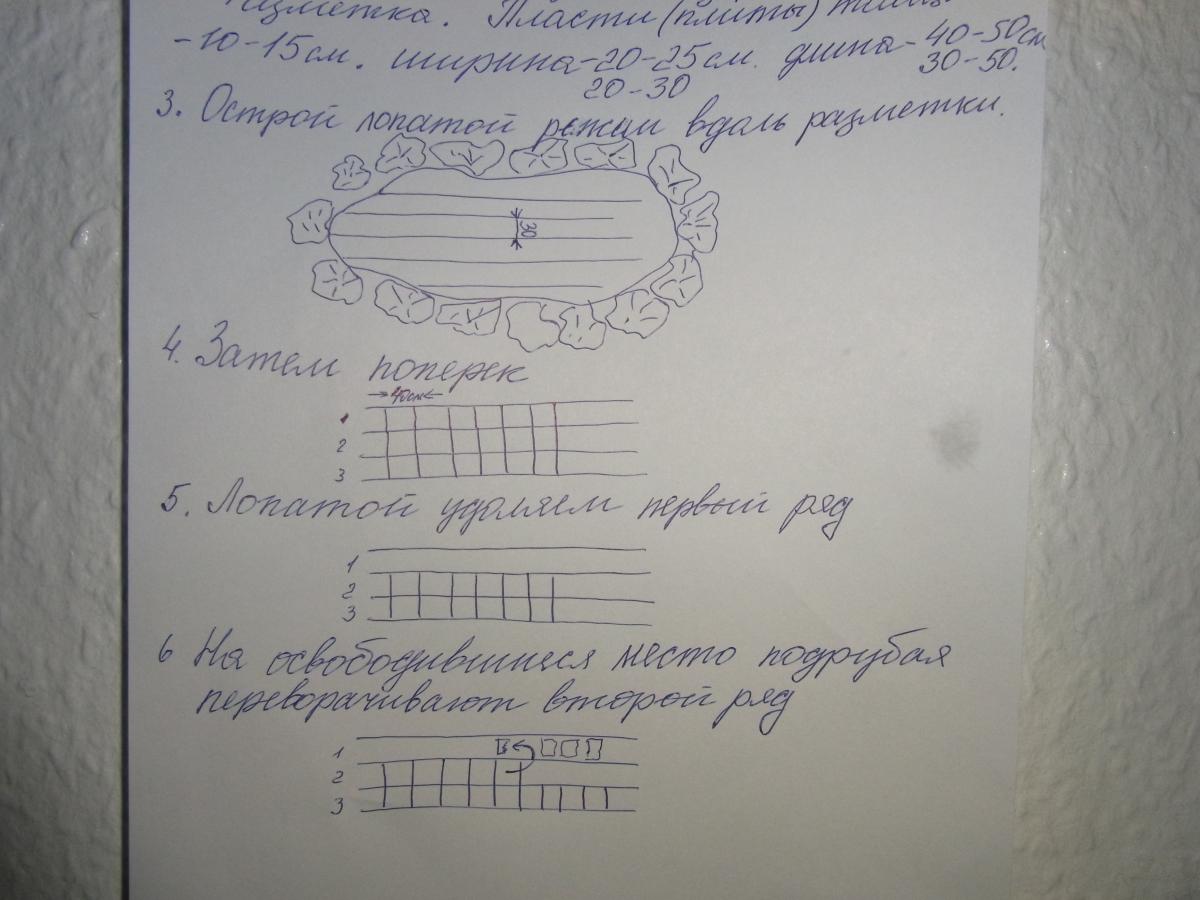 Разметка. Пласты (плиты)
-10-15см. ширина-20-25см. длина-40-50см
20-30 30-50.
3. Острой лопатой режем вдоль разметки.
30
4. Затем поперек
40см
1
2
3
5. Лопатой удаляем первый ряд
1
2
3
6 На освободившиеся место подрубая
переворачивают второй ряд
1
2
3